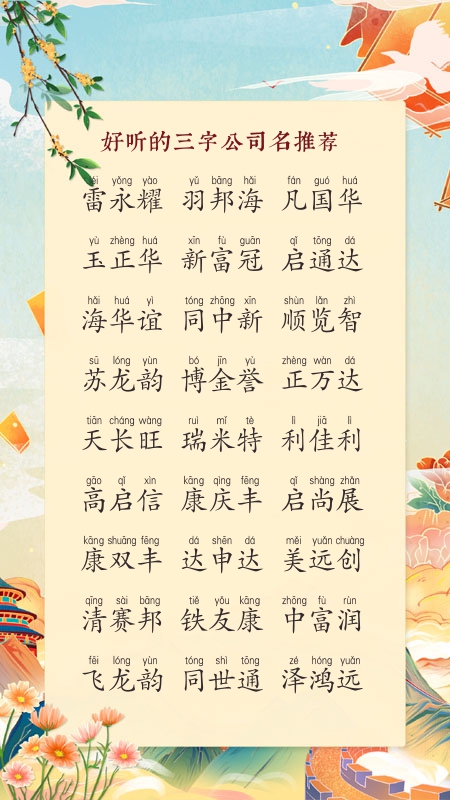 好听的三字公司名推荐
léi yǒng yào yǔ bāng hǎi fán guó huá
雷永耀 羽邦海 凡国华
yù zhèng huá xīn fù guān qǐ tōng dá
玉正华 新富冠 启通达
hǎi huá yì tóng zhōng xīn shùn lǎn zhì
海华谊 同中新 顺览智
sū lóng yùn bó jīn yù zhèng wàn dá
苏龙韵 博金誉 正万达
tiān cháng wàng ruì mǐ tè lì jiā lì
天长旺 瑞米特 利佳利
gāo qǐ xìn kāng qìng fēng qǐ shàng zhǎn
高启信 康庆丰 启尚展
kāng shuāng fēng dá shēn dá měi yuǎn chuàng
康双丰 达申达 美远创
qīng sài bāng tiě yǒu kāng zhōng fù rùn
清赛邦 铁友康 中富润
fēi lóng yùn tóng shì tōng zé hóng yuǎn
飞龙韵 同世通 泽鸿远